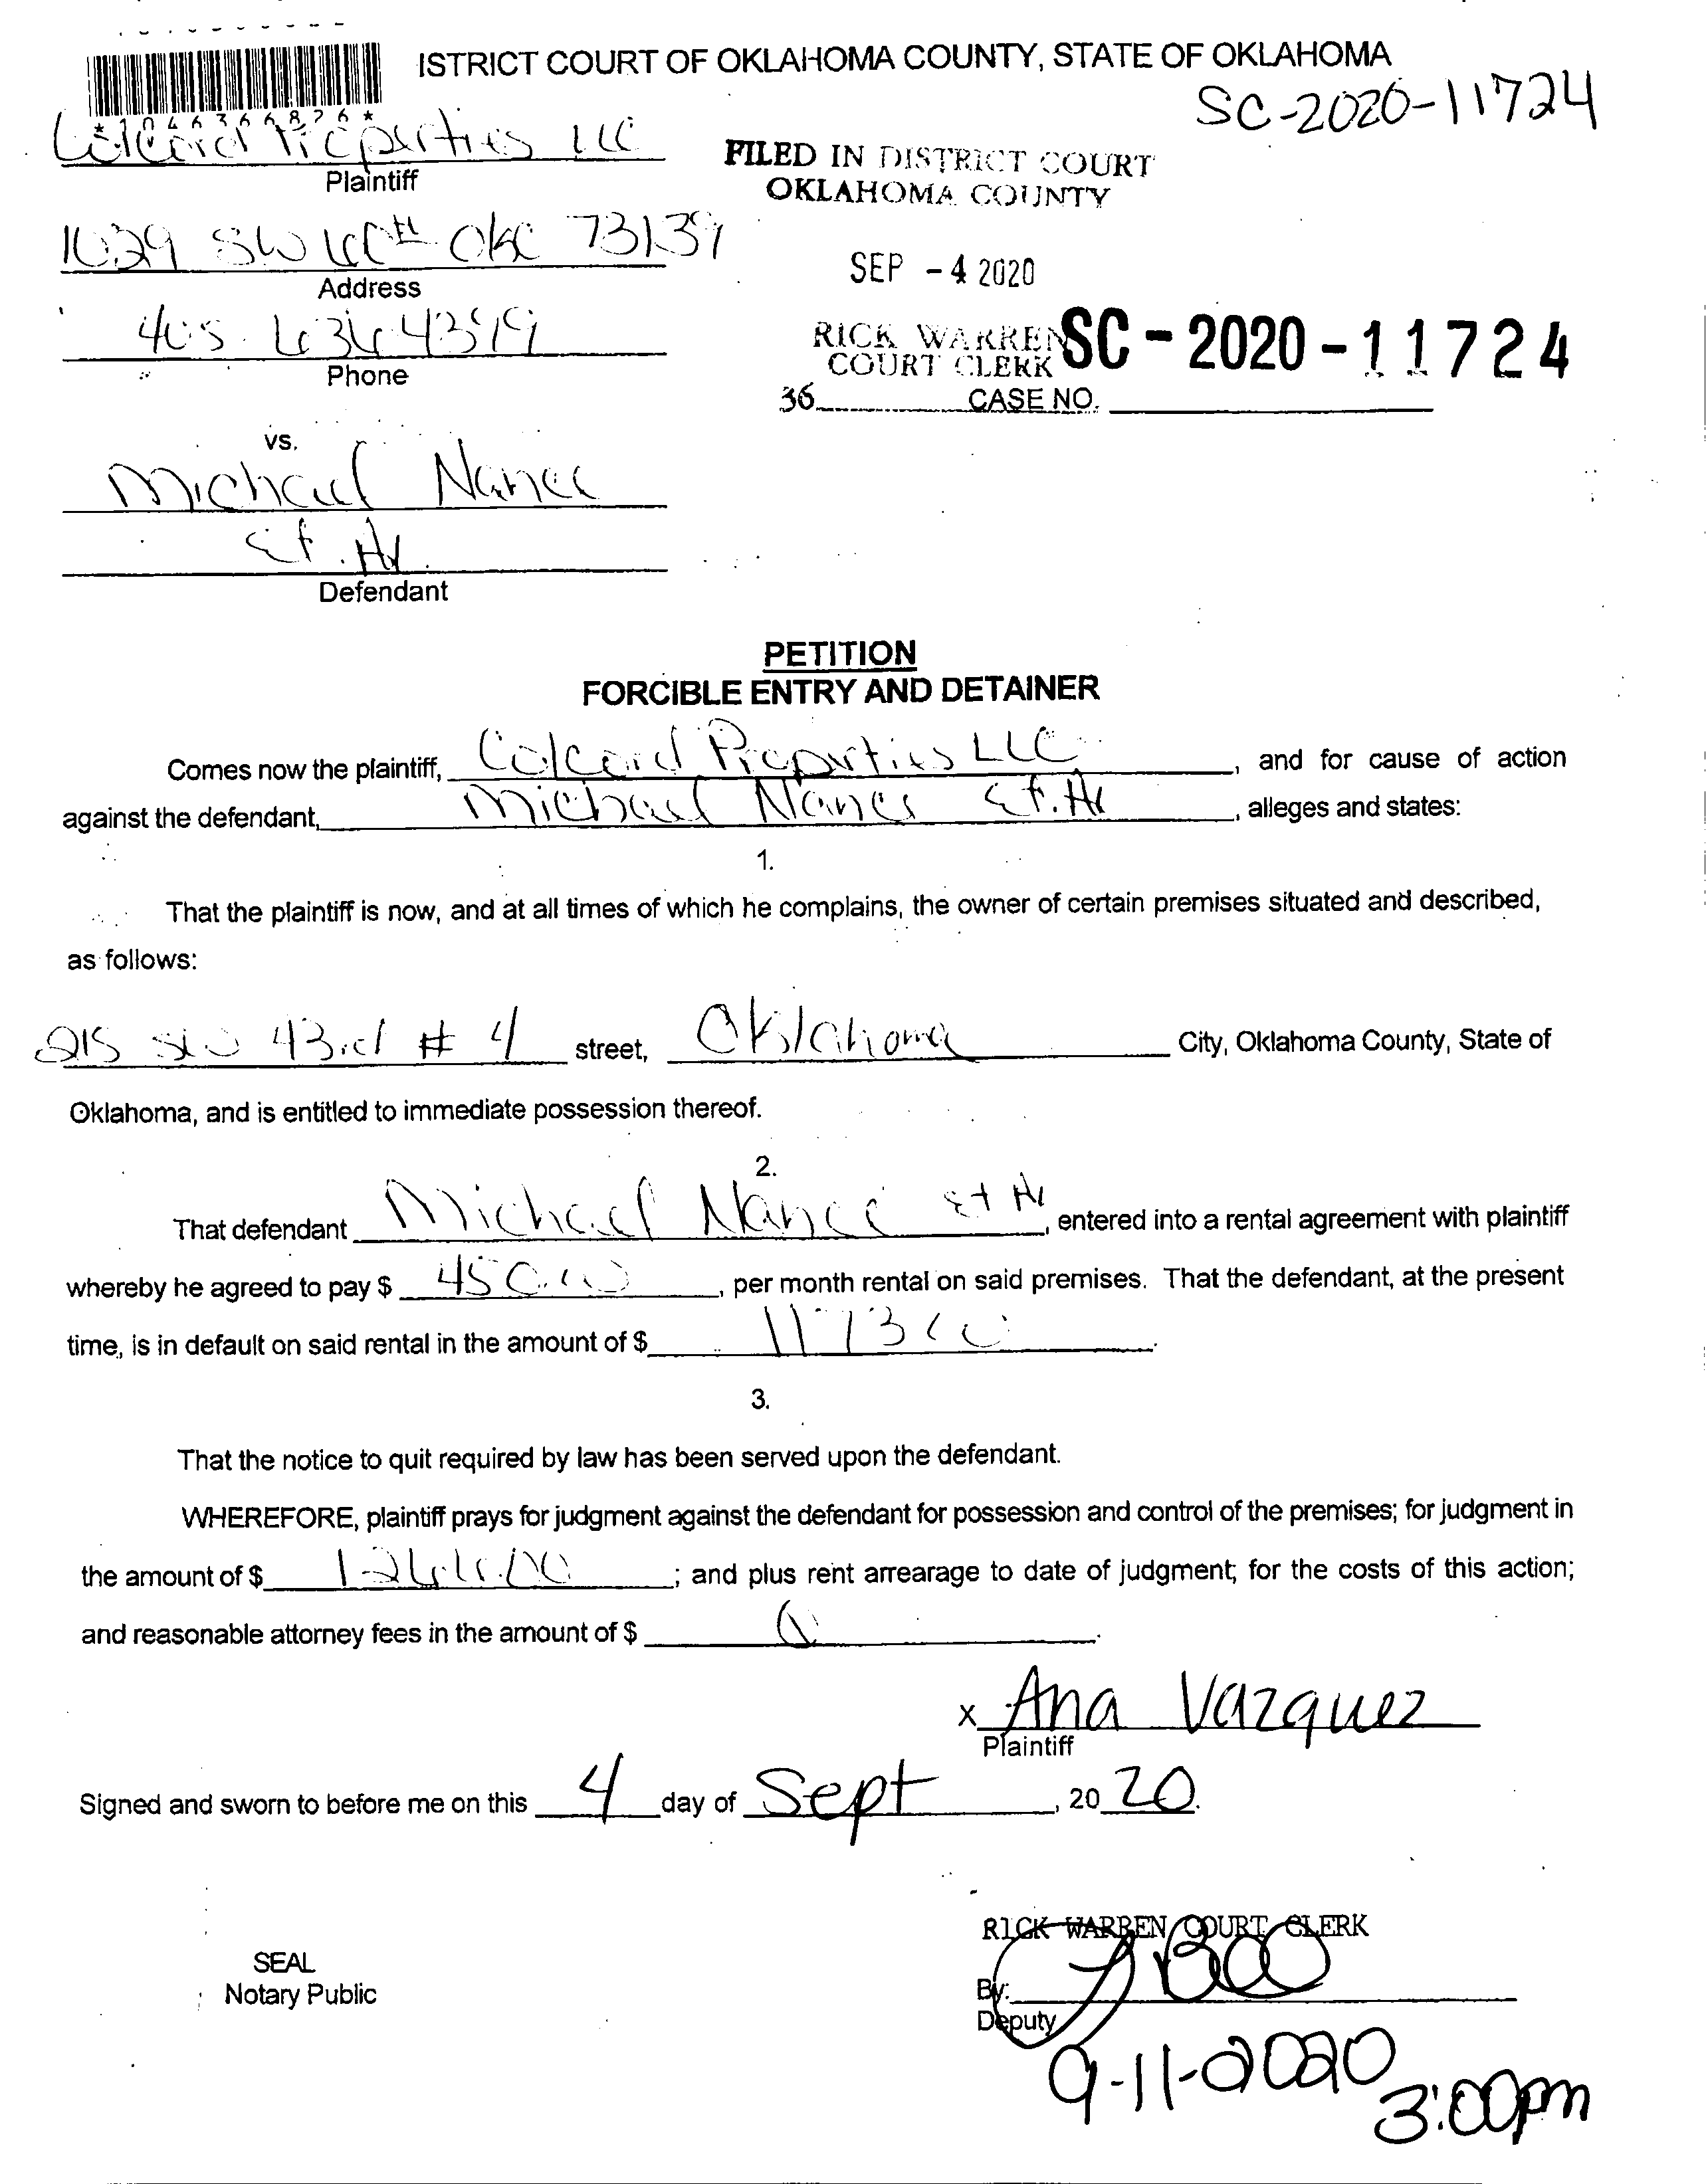 ISTRICT COURT OF OKLAHOMA COUNTY, STATE OF OKLAHOMA
SC-2020-11724
*1046366826*
Colcord Properties LLC
Plaintiff
FILED IN DISTRICT COURT
OKLAHOMA COUNTY
1029 SW OKC 73139
Address
SEP - 4 2020
405
Phone
RICK WARREN
COURT CLERK
SC - 2020 - 11724
36 CASE NO.
vs.
Michael Nance
Et. Al
Defendant
PETITION
FORCIBLE ENTRY AND DETAINER
Comes now the plaintiff, Colcord Properties LLC, and for cause of action
against the defendant, Michael Nance Et. Al, alleges and states:
1.
That the plaintiff is now, and at all times of which he complains, the owner of certain premises situated and described,
as follows:
215 SW 43rd # 4 street, Oklahoma City, Oklahoma County, State of
Oklahoma, and is entitled to immediate possession thereof.
2.
That defendant Michael Nance Et Al, entered into a rental agreement with plaintiff
whereby he agreed to pay $ 450.00, per month rental on said premises. That the defendant, at the present
time, is in default on said rental in the amount of $ 1173 00.
3.
That the notice to quit required by law has been served upon the defendant.
WHEREFORE, plaintiff prays for judgment against the defendant for possession and control of the premises; for judgment in
the amount of $ ; and plus rent arrearage to date of judgment; for the costs of this action;
and reasonable attorney fees in the amount of $ 0.
x Ana Vazquez
Plaintiff
Signed and sworn to before me on this 4 day of Sept, 20 20.
RICK WARREN COURT CLERK
SEAL
Notary Public
By:
Deputy
9-11-2020
3:00pm